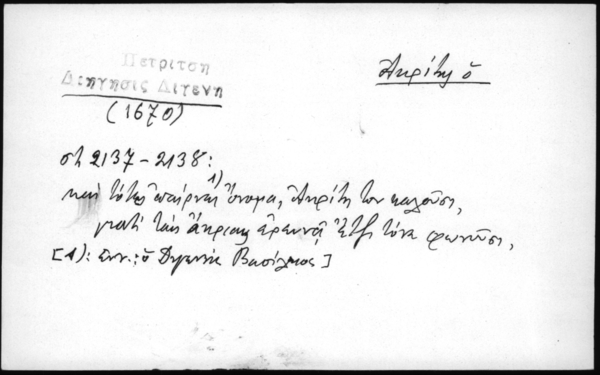 Πετρίτση
Διήγησις Διγενῆ
(1670)
Ἀκρίτης ὁ
στ 2137-2138:
καὶ τότες ἐπαίρνει 1) ὄνομα, Ἀκρίτη τον καλοῦσι,
γιατί τὰς ἄκρας ἐρευνᾷ ἔτζι τόνε φωνοῦσι,
[1): ενν.: ὁ Διγενὴς Βασίλειος]